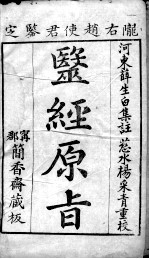 隴右趙使君鑒定
河東薛生白集註 慈水楊采青重校
毉經原旨
寧郡簡香齋藏板